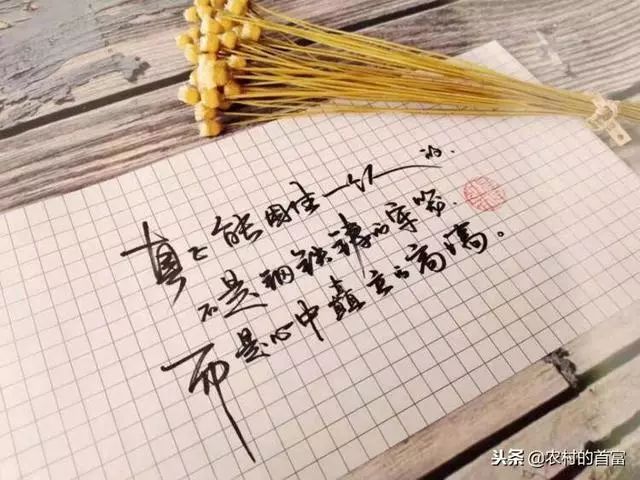 真正能困住一个人的.
不是钢铁铸的牢笼.
而是心中矗立的高墙。
头条 @农村的首富